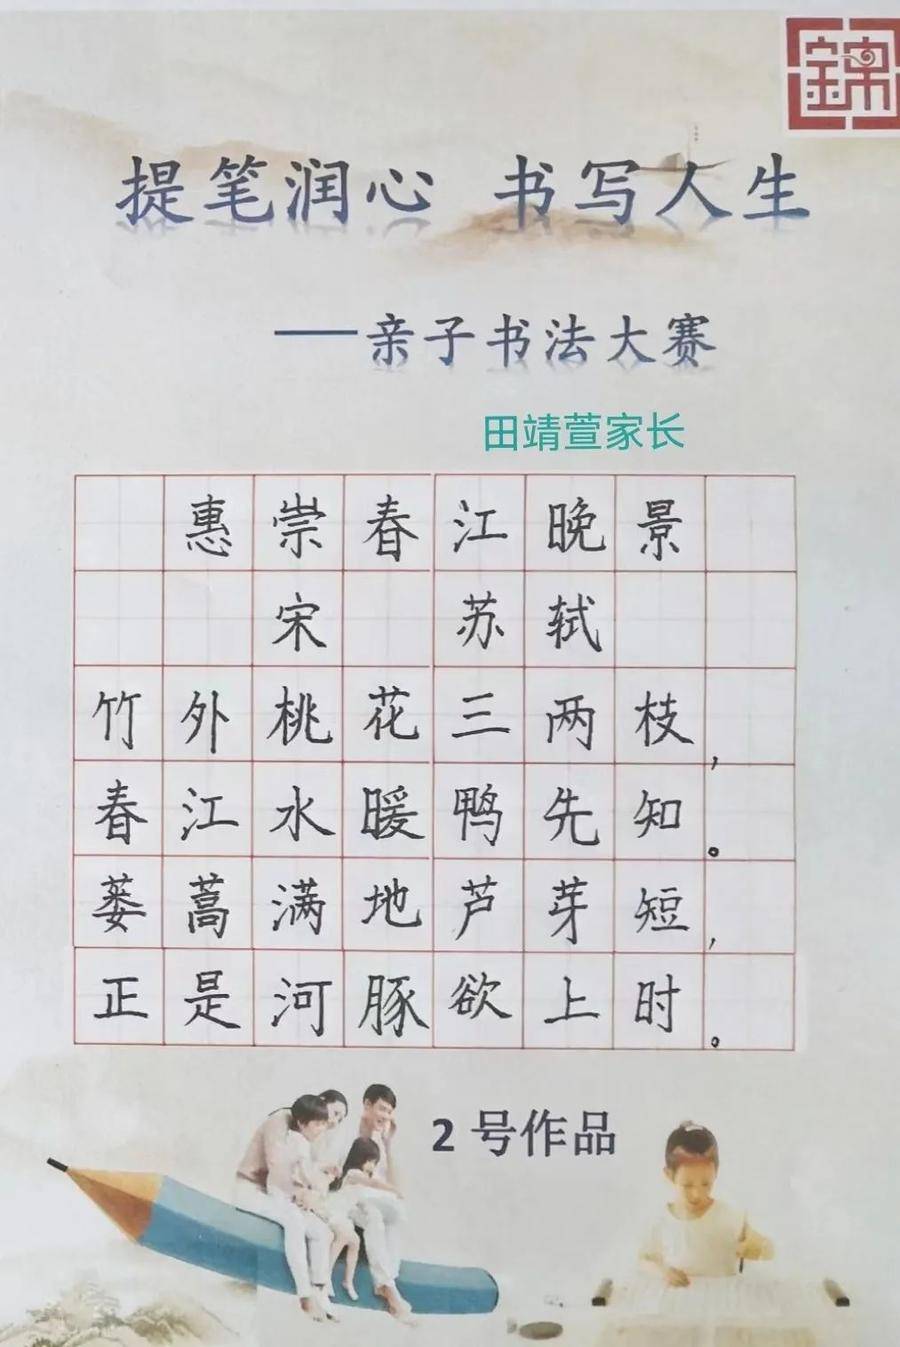 錦
提笔润心 书写人生
——亲子书法大赛
田靖萱家长
惠崇春江晚景
宋 苏轼
竹外桃花三两枝，
春江水暖鸭先知。
蒌蒿满地芦芽短，
正是河豚欲上时。
2号作品